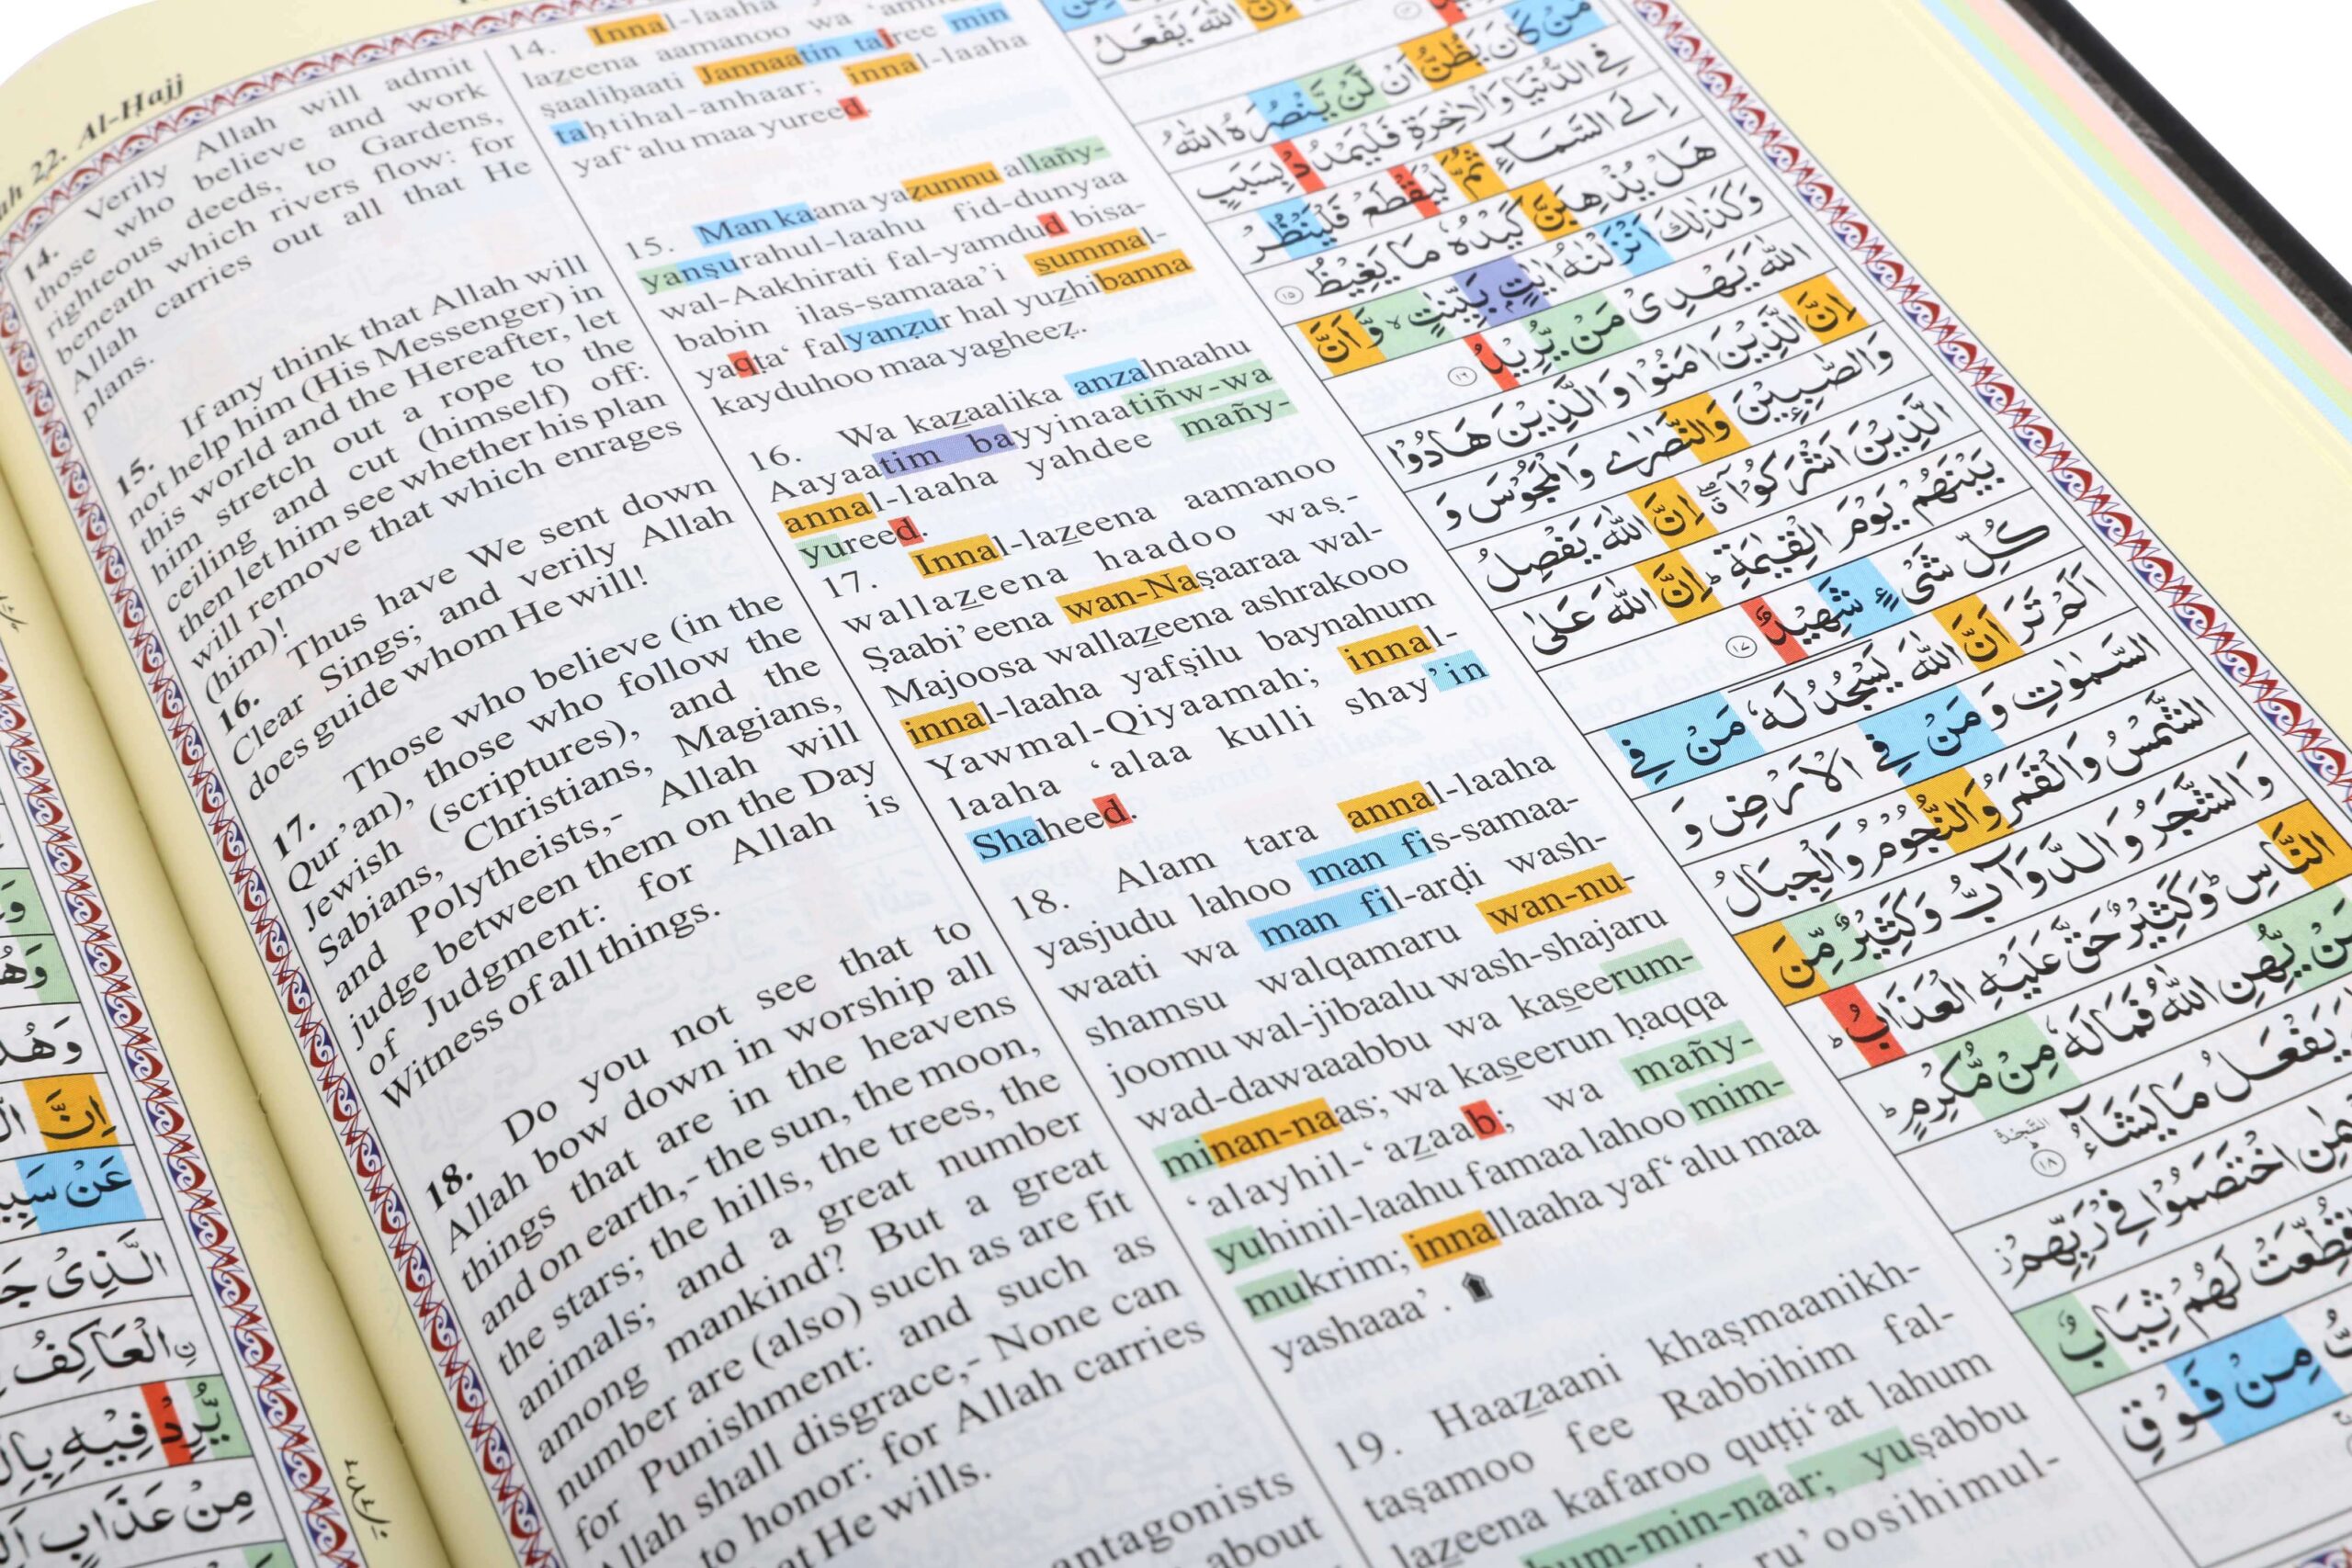 22. Al-Hajj
14. Verily Allah will admit
those who believe and work
righteous deeds, to Gardens,
beneath which rivers flow: for
Allah carries out all that He
plans.
15. If any think that Allah will
not help him (His Messenger) in
this world and the Hereafter, let
him stretch out a rope to the
ceiling and cut (himself) off:
then let him see whether his plan
will remove that which enrages
(him)!
16. Thus have We sent down
Clear Sings; and verily Allah
does guide whom He will!
17. Those who believe (in the
Qur'an), those who follow the
Jewish (scriptures), and the
Sabians, Christians, Magians,
and Polytheists,- Allah will
judge between them on the Day
of Judgment: for Allah is
Witness of all things.
18. Do you not see that to
Allah bow down in worship all
things that are in the heavens
and on earth,- the sun, the moon,
the stars; the hills, the trees, the
animals; and a great number
among mankind? But a great
number are (also) such as are fit
for Punishment: and such as
Allah shall disgrace,- None can
to honor: for Allah carries
He wills.
antagonists
about
14. Innal-laaha
lazeena aamanoo wa
ṣaaliḥaati Jannaatin tajree min
taḥtihal-anhaar; innal-laaha
yaf‘alu maa yureed.
15. Man kaana yazunnu allañy-
yanṣurahul-laahu fid-dunyaa
wal-Aakhirati fal-yamdud bisa-
babin ilas-samaaa’i summal-
yaqṭa‘ falyanẓur hal yuzhibanna
kayduhoo maa yagheeẓ.
16. Wa kazaalika anzalnaahu
Aayaatim bayyinaatiñw-wa
annal-laaha yahdee mañy-
yureed.
17. Innal-lazeena aamanoo
wallazeena haadoo waṣ-
Ṣaabi’eena wan-Naṣaaraa wal-
Majoosa wallazeena ashrakooo
innal-laaha yafṣilu baynahum
Yawmal-Qiyaamah; innal-
laaha ‘alaa kulli shay’in
Shaheed.
18. Alam tara annal-laaha
yasjudu lahoo man fis-samaa-
waati wa man fil-arḍi wash-
shamsu walqamaru wan-nu-
joomu wal-jibaalu wash-shajaru
wad-dawaaabbu wa kaseerum-
minan-naas; wa kaseerun ḥaqqa
‘alayhil-‘azaab; wa mañy-
yuhinil-laahu famaa lahoo mim-
mukrim; innallaaha yaf‘alu maa
yashaaa’.
19. Haazaani khaṣmaanikh-
taṣamoo fee Rabbihim fal-
lazeena kafaroo quṭṭi‘at lahum
min-naar; yuṣabbu
ru’oosihimul-
اللّٰهَ يَفْعَلُ
مَنْ كَانَ يَظُنُّ اَنْ لَّنْ يَّنْصُرَهُ اللّٰهُ
فِي الدُّنْيَا وَالْاٰخِرَةِ فَلْيَمْدُدْ بِسَبَبٍ
اِلَى السَّمَآءِ ثُمَّ لْيَقْطَعْ فَلْيَنْظُرْ
هَلْ يُذْهِبَنَّ كَيْدُهٗ مَا يَغِيْظُ ١٥
وَكَذٰلِكَ اَنْزَلْنٰهُ اٰيٰتٍۢ بَيِّنٰتٍ وَّاَنَّ
اللّٰهَ يَهْدِيْ مَنْ يُّرِيْدُ ١٦
اِنَّ الَّذِيْنَ اٰمَنُوْا وَالَّذِيْنَ هَادُوْا
وَالصّٰبِـِٕيْنَ وَالنَّصٰرٰى وَالْمَجُوْسَ وَ
الَّذِيْنَ اَشْرَكُوْٓا اِنَّ اللّٰهَ يَفْصِلُ
بَيْنَهُمْ يَوْمَ الْقِيٰمَةِ ؕ اِنَّ اللّٰهَ عَلٰى
كُلِّ شَيْءٍ شَهِيْدٌ ١٧
اَلَمْ تَرَ اَنَّ اللّٰهَ يَسْجُدُ لَهٗ مَنْ فِي
السَّمٰوٰتِ وَ مَنْ فِي الْاَرْضِ وَ
الشَّمْسُ وَالْقَمَرُ وَالنُّجُوْمُ وَالْجِبَالُ
وَالشَّجَرُ وَالدَّوَآبُّ وَكَثِيْرٌ مِّنَ
النَّاسِ ؕ وَكَثِيْرٌ حَقَّ عَلَيْهِ الْعَذَابُ ؕ
يُّهِنِ اللّٰهُ فَمَا لَهٗ مِنْ مُّكْرِمٍ ؕ
يَفْعَلُ مَا يَشَآءُ ١٨
اخْتَصَمُوْا فِيْ رَبِّهِمْ
قُطِّعَتْ لَهُمْ ثِيَابٌ
مِنْ فَوْقِ
اِنَّ
عَنْ
الَّذِيْ
ِ۟الْعَاكِفُ
يُّرِدْ فِيْهِ
مِنْ عَذَابٍ